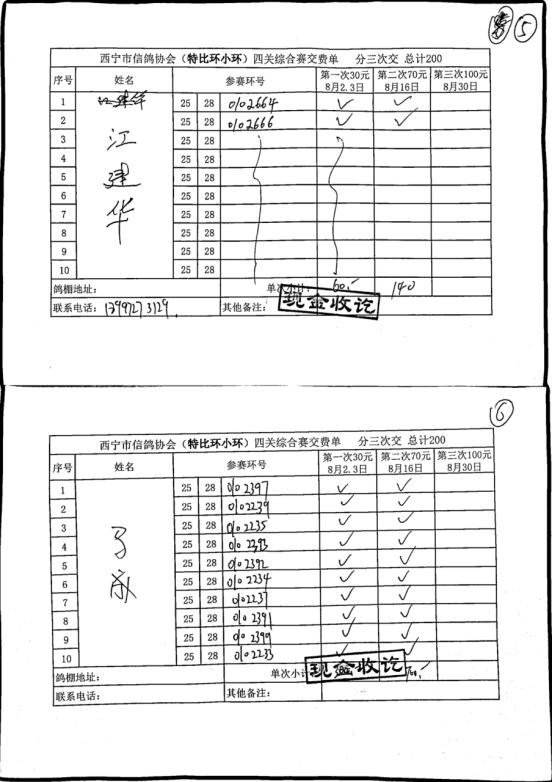 ⑤
西宁市信鸽协会（特比环小环）四关综合赛交费单 分三次交 总计200
序号 姓名 参赛环号 第一次30元 8月2.3日 第二次70元 8月16日 第三次100元 8月30日
1 江建华 25 28 0102664 ✓ ✓
2 25 28 0102666 ✓ ✓
3 25 28
4 25 28
5 25 28
6 25 28
7 25 28
8 25 28
9 25 28
10 25 28
江建华
鸽棚地址： 单次小计： 60.- 140
联系电话：13997273129 其他备注：
现金收讫
⑥
西宁市信鸽协会（特比环小环）四关综合赛交费单 分三次交 总计200
序号 姓名 参赛环号 第一次30元 8月2.3日 第二次70元 8月16日 第三次100元 8月30日
1 25 28 0102397 ✓ ✓
2 25 28 0102239 ✓ ✓
3 25 28 0102235 ✓ ✓
4 25 28 0102393 ✓ ✓
5 25 28 0102392 ✓ ✓
6 25 28 0102234 ✓ ✓
7 25 28 0102237 ✓ ✓
8 25 28 0102391 ✓ ✓
9 25 28 0102399 ✓ ✓
10 25 28 0102233 ✓ ✓
鸽棚地址： 单次小计
现金收讫
联系电话： 其他备注：